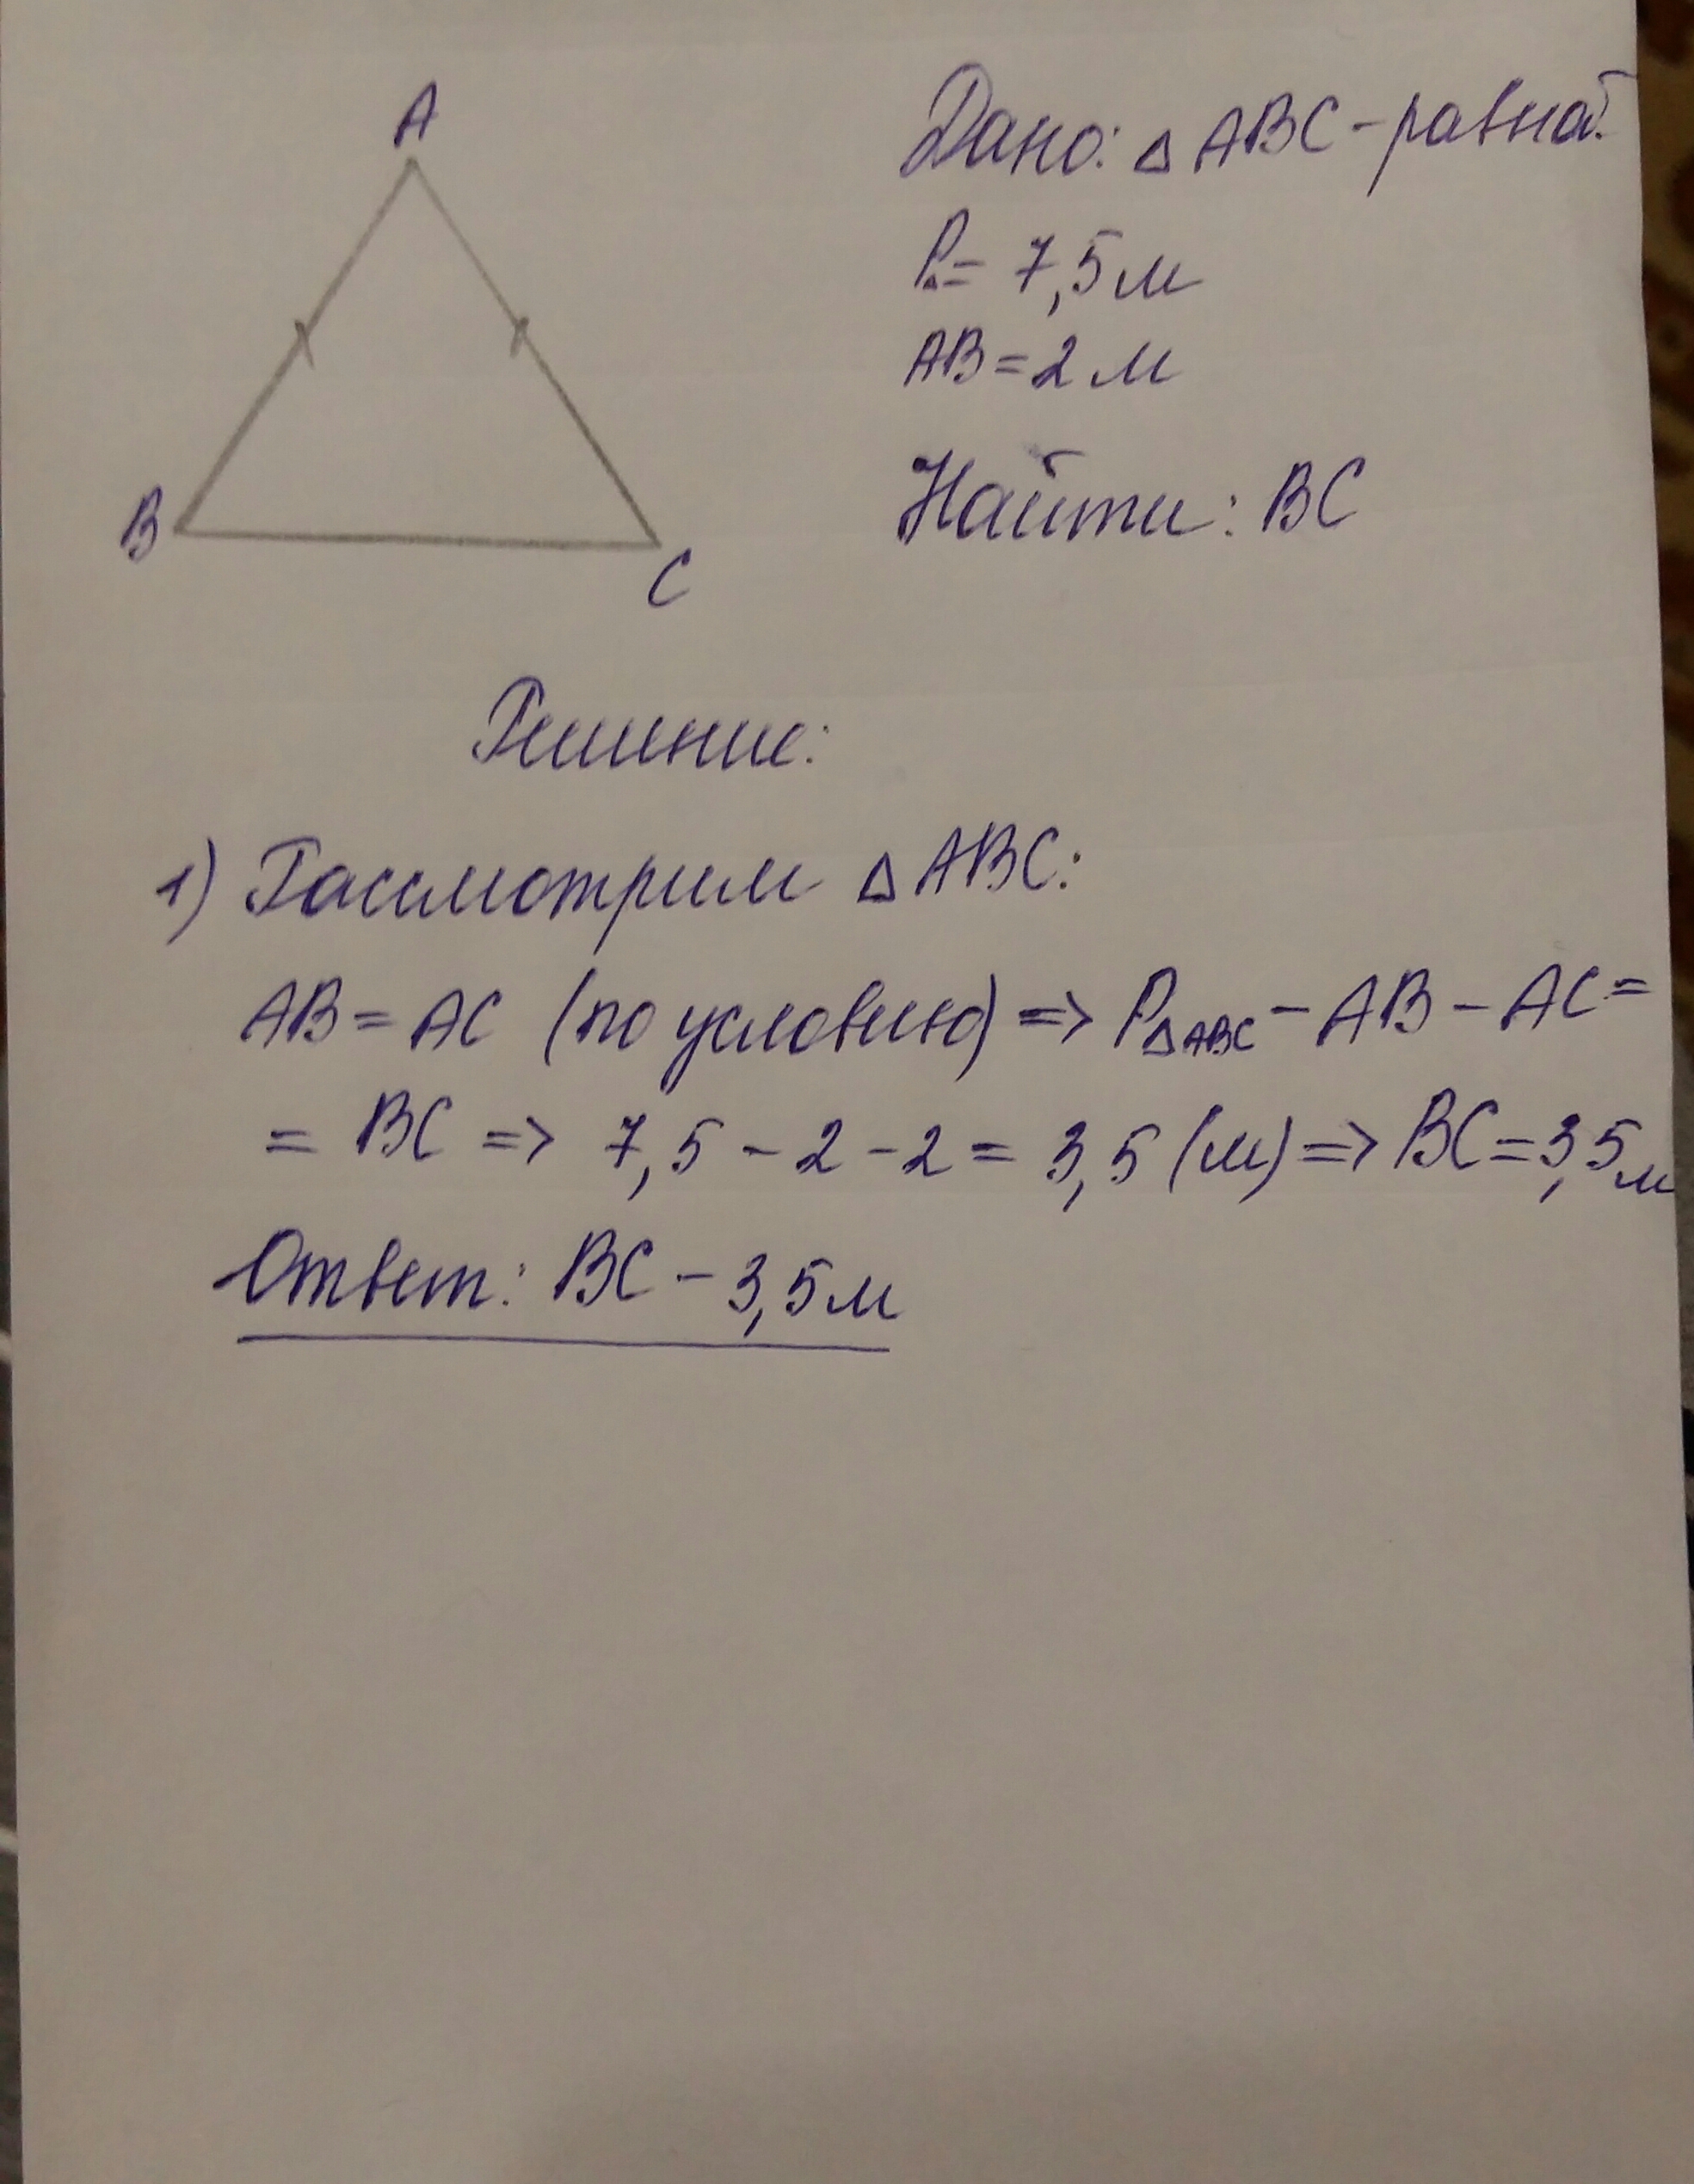 A
B
C
Дано: △ ABC - равноб.
P△ = 7,5 м
AB = 2 м
Найти: BC
Решение:
1) Рассмотрим △ ABC:
AB = AC (по условию) => P△ABC - AB - AC =
= BC => 7,5 - 2 - 2 = 3,5 (м) => BC = 3,5 м
Ответ: BC - 3,5 м